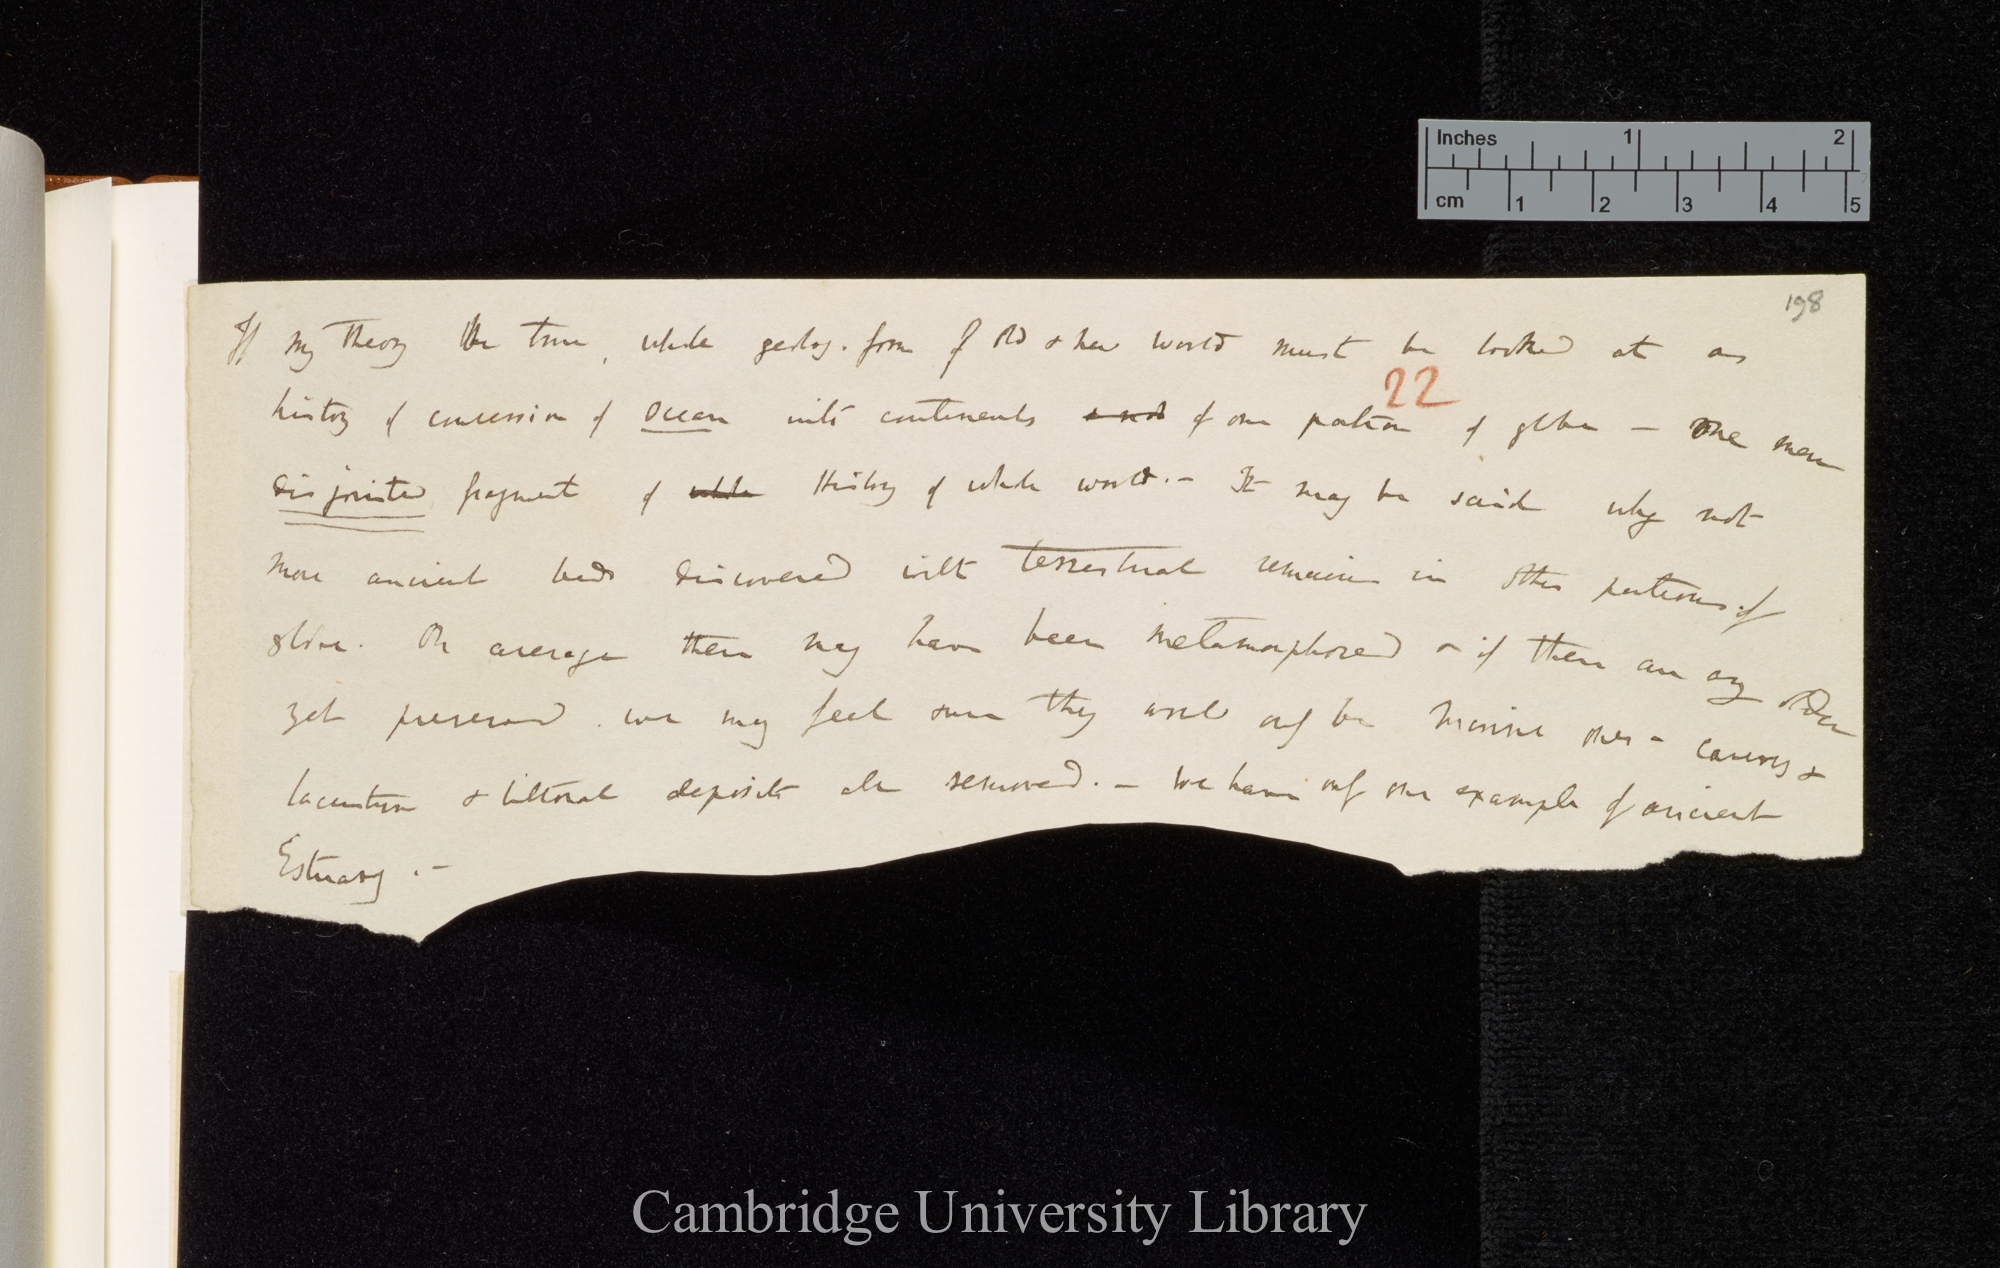 Inches 1 2
cm 1 2 3 4 5
198
If my theory be true, whole geolog. form of old & new world must be looked at as
22
history of conversion of Ocean into continents & not of one portion of globe — one mere
disjointed fragment of whole History of whole world. — It may be said why not
more ancient beds discovered with terrestrial remains in other portions of
globe. On average there may have been metamorphosed or if there are any older
yet preserved. we may feel sure they would only be Marine ones — &
lacustrine & littoral deposits all removed. — We have only one example of ancient
Estuary. —
Cambridge University Library